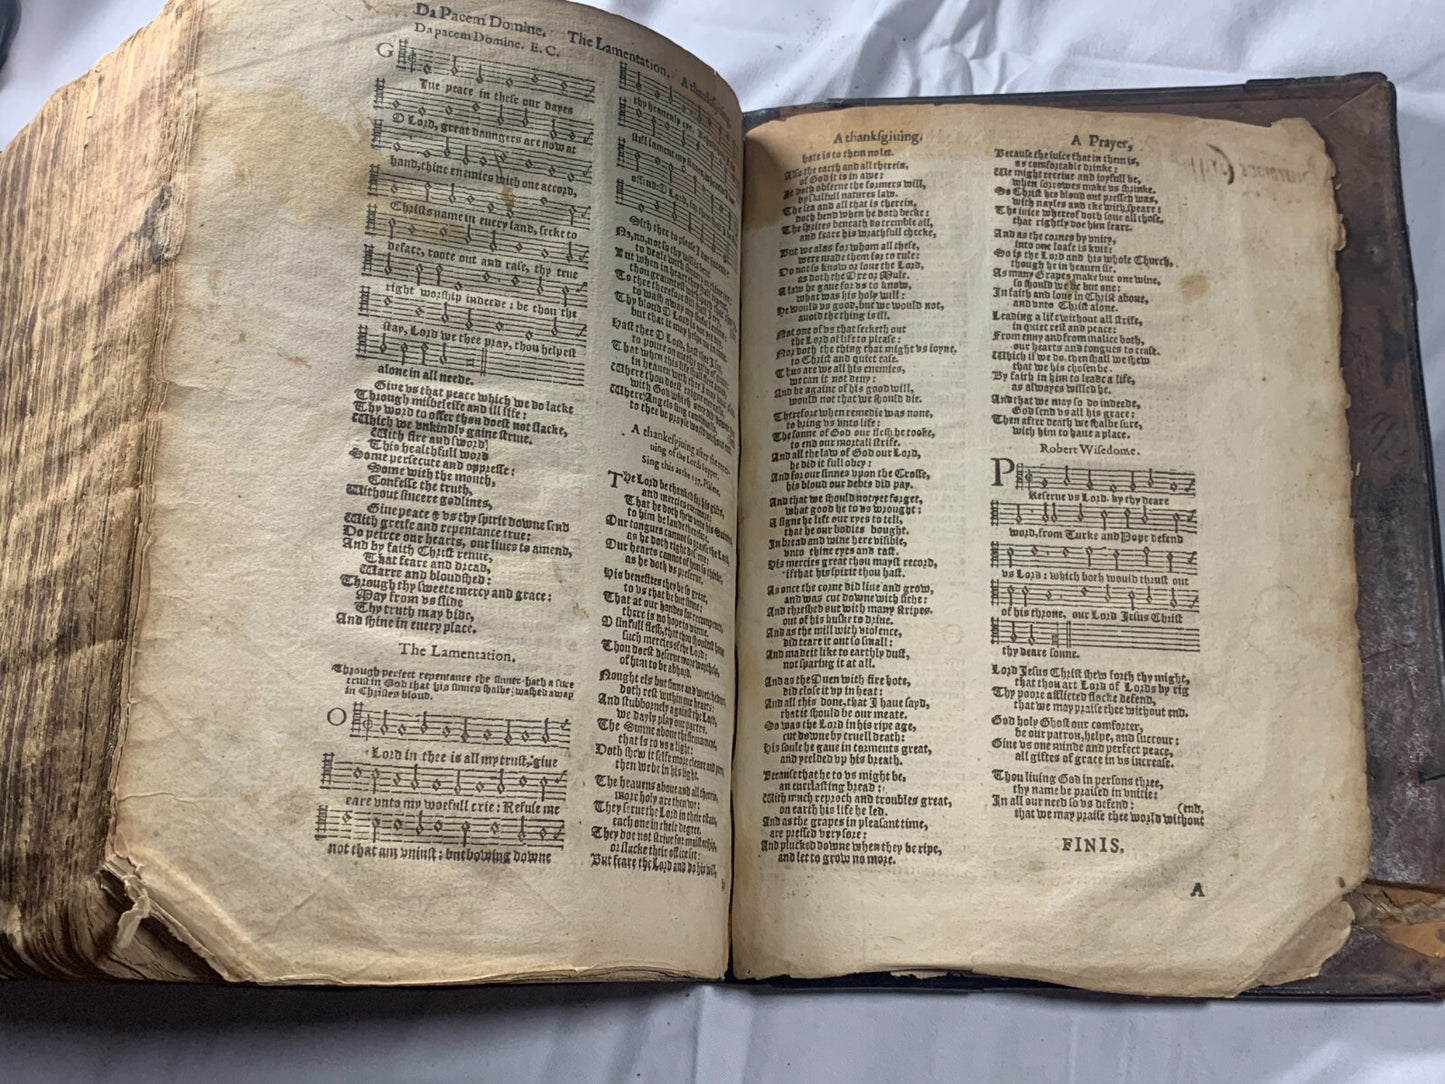 Da Pacem Domine. The Lamentation. A thanksgiuing
Da pacem Domine. E. C.
G
Iue peace in these our dayes
O Lord, great daungers are now at
hand, thine enemies with one accord,
Christs name in euery land, seeke to
deface, roote out and rase, thy true
right worship indeede: be thou the
stay, Lord we thee pray, thou helpest
alone in all neede.
Giue vs that peace which we do lacke
Through misbeleife and ill life:
Thy word to offer thou doest not slacke,
Which we vnkindly gaine striue.
With fire and sword
This healthfull word
Some persecute and oppresse:
Some with the mouth,
Confesse the truth,
Without sincere godlines,
Giue peace & vs thy spirit downe send
With greife and repentance true:
Do peirce our hearts, our liues to amend,
And by faith Christ renue,
That feare and dread,
Warre and bloudshed:
Through thy sweete mercy and grace:
May from vs slide
Thy truth may bide,
And shine in euery place.
The Lamentation.
Through perfect repentance the sinner hath a sure
trust in God that his sinnes shalbe washed away
in Christes bloud.
O
Lord in thee is all my trust, giue
eare vnto my woefull crie: Refuse me
not that am vniust: but bowing downe
thy heauenly eye.
still lament my
No, no, not so thy will
But when in heart
Hast thee O Lord, hast
to poure on me
That when this life
in heauen with
Where thou doest
with God
Where Angels sing continually,
to thee be prayse world without end.
A thanksgiuing after the receiuing
of the Lords supper.
Sing this as the 137. Psalme.
The Lord be thanked for his giftes,
and mercies euermore:
That he doth shew vnto his Saintes,
to him be laude therefore.
Our tongues cannot so praise the Lord
as he doth right deserue:
Our hearts cannot of him so thinke,
as he doth vs preserue.
His benefites they be so great,
to vs that be but sinne:
That at our handes for recompence,
there is no hope to winne.
O sinfull flesh, that thou shouldst haue
such mercies of the Lord:
Thou doest deserue more worthely,
of him to be abhord.
Nought els but sinne and wretchednes,
doth rest within our hearts:
And stubbornely against the Lord,
we dayly play our partes.
The Sunne aboue the firmament,
that is to vs a light:
Doth shew it selfe more cleane and pure,
then we be in his sight.
The heauens aboue and all therein,
more holy are then we:
They serue the Lord in their estate,
each one in their degree.
They doe not striue for maistership,
or slacke their office set:
But feare the Lord and do his will,
A thanksgiuing.
hate is to them no let.
Also the earth and all therein,
of God it is in awe:
It doth obserue the formers will,
by skilfull natures law.
The sea and all that is therein,
doth bend when he doth becke:
The spirites beneath do tremble all,
and feare his wrathfull checke,
But we alas for whom all these,
were made them for to rule:
Do not so know or loue the Lord,
as doth the Oxe or Mule.
A law he gaue for vs to know,
what was his holy will:
He would vs good, but we would not,
auoid the thing is ill.
Not one of vs that seeketh out
the Lord of life to please:
Nor doth the thing that might vs ioyne,
to Christ and quiet ease.
Thus are we all his enemies,
we can it not deny:
And he againe of his good will,
would not that we should die.
Therefore when remedie was none,
to bring vs vnto life:
The sonne of God our flesh he tooke,
to end our mortall strife.
And all the law of God our Lord,
he did it full obey:
And for our sinnes vpon the Crosse,
his bloud our debts did pay.
And that we should not yet forget,
what good he to vs wrought:
A signe he left our eyes to tell,
that he our bodies bought.
In bread and wine here visible,
vnto thine eyes and tast.
His mercies great thou mayst record,
if that his spirit thou hast.
As once the corne did liue and grow,
and was cut downe with sithe:
And threshed out with many stripes.
out of his huske to driue.
And as the mill with violence,
did teare it out so small:
And made it like to earthly dust,
not sparing it at all.
And as the Ouen with fire hote,
did close it vp in heat:
And all this done, that I haue sayd,
that it should be our meate.
So was the Lord in his ripe age,
cut downe by cruell death:
His soule he gaue in torments great,
and yeelded vp his breath.
Because that he to vs might be,
an euerlasting bread:
With much reproch and troubles great,
on earth his life he led.
And as the grapes in pleasant time,
are pressed very sore:
And plucked downe when they be ripe,
and let to grow no more.
A Prayer,
Because the iuice that in them is,
as comfortable drinke:
We might receiue and ioyfull be,
when sorrowes make vs shrinke.
So Christ his bloud out pressed was,
with nayles and eke with speare:
The iuice whereof doth saue all those,
that rightly doe him feare.
And as the cornes by vnity,
into one loafe is knit:
So is the Lord and his whole Church,
though he in heauen sit.
As many Grapes make but one wine,
so should we be but one:
In faith and loue in Christ aboue,
and vnto Christ alone.
Leading a life without all strife,
in quiet rest and peace:
From enuy and from malice both,
our hearts and tongues to cease.
Which if we do, then shall we shew
that we his chosen be.
By faith in him to leade a life,
as alwayes willed he.
And that we may so do indeede,
God send vs all his grace:
Then after death we shalbe sure,
with him to haue a place.
Robert Wisedome.
P
Reserue vs Lord, by thy deare
word, from Turke and Pope defend
vs Lord: which both would thrust out
of his throne, our Lord Iesus Christ
thy deare sonne.
Lord Iesus Christ shew forth thy might,
that thou art Lord of Lords by rig
Thy poore afflicted flocke defend,
that we may praise thee without end.
God holy Ghost our comforter,
be our patron, helpe, and succour:
Giue vs one minde and perfect peace,
all giftes of grace in vs increase.
Thou liuing God in persons three,
thy name be praised in vnitie:
In all our need so vs defend: (end,
that we may praise thee world without
FINIS,
A